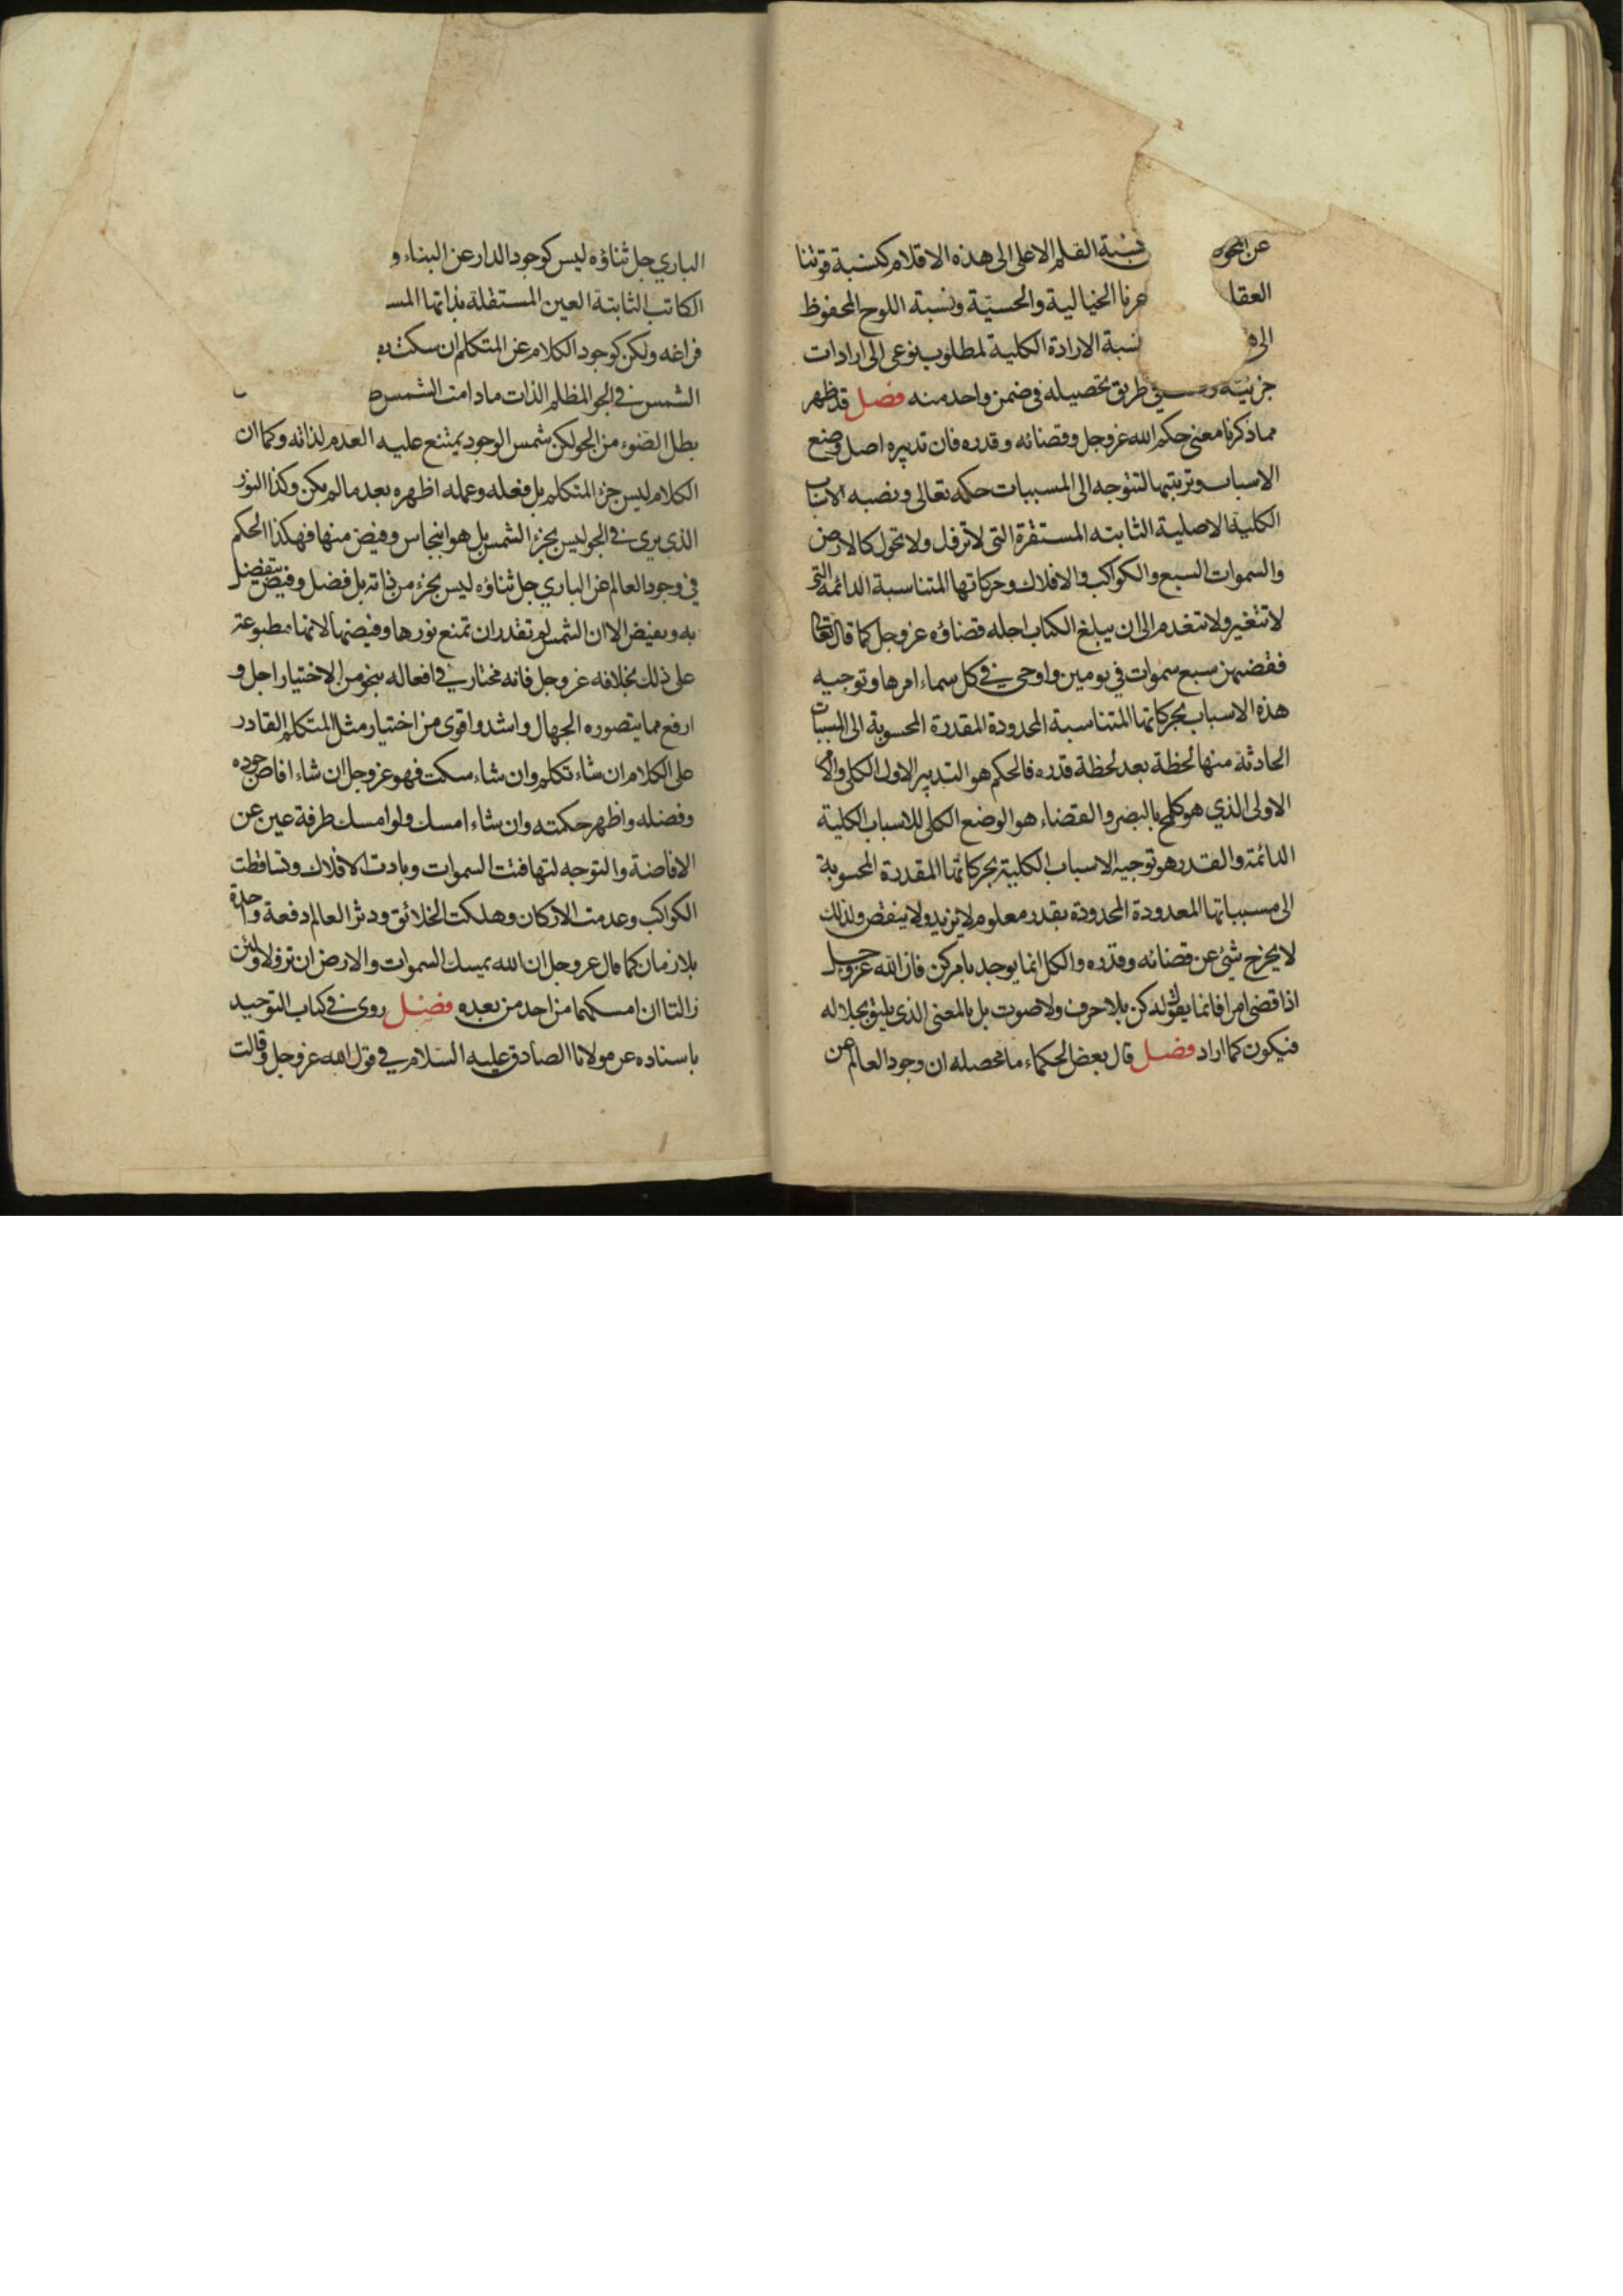 عن المحو نسبة القلم الاعلى الى هذه الاقلام كنسبة قوتنا
العقلـ الخيالية والحسية ونسبة اللوح المحفوظ
الى نسبة الارادة الكلية لمطلوب نوعى الى ارادات
جزئية طريق تحصيله فى ضمن واحد منه فصل قد ظهر
مما ذكرنا معنى حكم الله عز وجل وقضائه وقدره فان تدبيره اصل وضع
الاسباب وترتيبها لتتوجه الى المسببات حكمه تعالى ونصبه الاسباب
الكلية الاصلية الثابته المستقرة التى لا تزول ولا تحول كالارض
والسموات السبع والكواكب والافلاك وحركاتها المتناسبة الدائمة التى
لا تتغير ولا تنعدم الى ان يبلغ الكتاب اجله قضاؤه عز وجل كما قال تعالى
فقضيهن سبع سموات فى يومين واوحى فى كل سماء امرها وتوجيه
هذه الاسباب بحركاتها المتناسبة المحدودة المقدرة المحسوبة الى المسببات
الحادثة منها لحظة بعد لحظة قدره فالحكم هو التدبير الاول الكلى والامر
الاولى الذي هو كلمح بالبصر والقضاء هو الوضع الكلى للاسباب الكلية
الدائمة والقدر هو توجيه الاسباب الكلية بحركاتها المقدرة المحسوبة
الى مسبباتها المعدودة المحدودة بقدر معلوم لا يزيد ولا ينقص ولذلك
لا يخرج شئ عن قضائه وقدره والكل انما يوجد بامر كن فان الله عز وجل
اذا قضى امرا فانما يقول له كن بلا حرف ولا صوت بل بالمعنى الذى يليق بجلاله
فيكون كما اراد فصل قال بعض الحكماء ما محصله ان وجود العالم عن
الباري جل ثناؤه ليس كوجود الدار عن البناء و
الكاتب الثابتة العين المستقلة بذاتها المسـ
فراغه ولكن كوجود الكلام عن المتكلم ان سكت
الشمس فى الجو المظلم الذات ما دامت الشمس
بطل الضوء من الجو لكن شمس الوجود يمتنع عليه العدم لذاته وكما ان
الكلام ليس جزء المتكلم بل فعله وعمله اظهره بعد ما لم يكن وكذا النور
الذى يرى فى الجو ليس بجزء الشمس بل هو انبجاس وفيض منها فهكذا الحكم
في وجود العالم عن الباري جل ثناؤه ليس بجزء من ذاته بل فضل وفيض يتفضل
به ويفيض الا ان الشمس لم تقدر ان تمنع نورها وفيضها لانها مطبوعة
على ذلك بخلافه عز وجل فانه مختار فى افعاله بنحو من الاختيار اجل و
ارفع مما يتصوره الجهال واشد واقوى من اختيار مثل المتكلم القادر
على الكلام ان شاء تكلم وان شاء سكت فهو عز وجل ان شاء افاض جوده
وفضله واظهر حكمته وان شاء امسك ولو امسك طرفة عين عن
الافاضة والتوجه لتهافتت السموات وبادت الافلاك وتساقطت
الكواكب وعدمت الاركان وهلكت الخلائق ودثر العالم دفعة واحدة
بلا زمان كما قال عز وجل ان الله يمسك السموات والارض ان تزولا ولئن
زالتا ان امسكهما من احد من بعده فصل روى فى كتاب التوحيد
باسناده عن مولانا الصادق عليه السلام في قول الله عز وجل وقالت